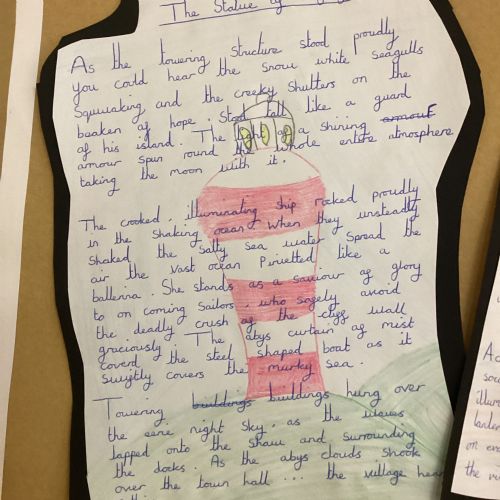 The Statue of
As the towering structure stood proudly
You could hear the snow white seagulls
Squwaking and the creeky shutters on the
beaken of hope. Stood tall like a guard
of his island. The light of a shining armour
armour spun round the whole entire atmosphere
taking the moon with it.
The crooked, illuminating ship rocked proudly
in the shaking ocean. When they unsteadly
Shaked the salty sea water spread the
air the vast ocean Pirietted like a
ballerina. She stands as a saviour of glory
to on coming sailors, who safely avoid
the deadly crush of the cliff wall
graciously. The abys curtain of mist
coverd the steel shaped boat as it
swiftly covers the murky sea.
Towering buildings buildings hung over
the eere night sky. as the waves
lapped onto the shaw and surrounding
the docks. As the abys clouds shook
over the town hall ... the village
Ac
sou
illum
lanter
on
the